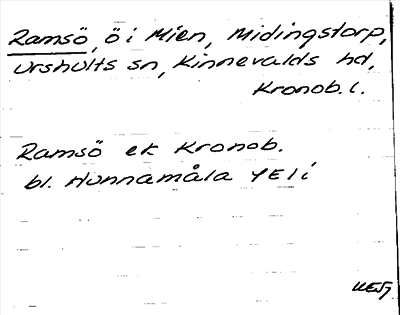 Ramsö, ö i Mien, Midingstorp,
Urshults sn, Kinnevalds hd,
Kronob. l.
Ramsö ek Kronob.
bl. Hunnamåla YE1i